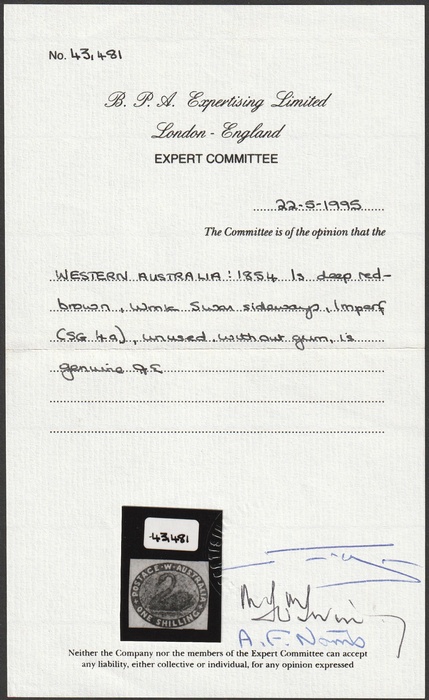 No. 43,481
B. P. A. Expertising Limited
London - England
EXPERT COMMITTEE
22-5-1995
The Committee is of the opinion that the
WESTERN AUSTRALIA : 1854 1s deep red-
brown, Wmk Swan sideways, Imperf
(SG 4a), unused without gum, is
genuine
43,481
POSTAGE·W·AUSTRALIA
ONE SHILLING
A. F. Norris
Neither the Company nor the members of the Expert Committee can accept
any liability, either collective or individual, for any opinion expressed